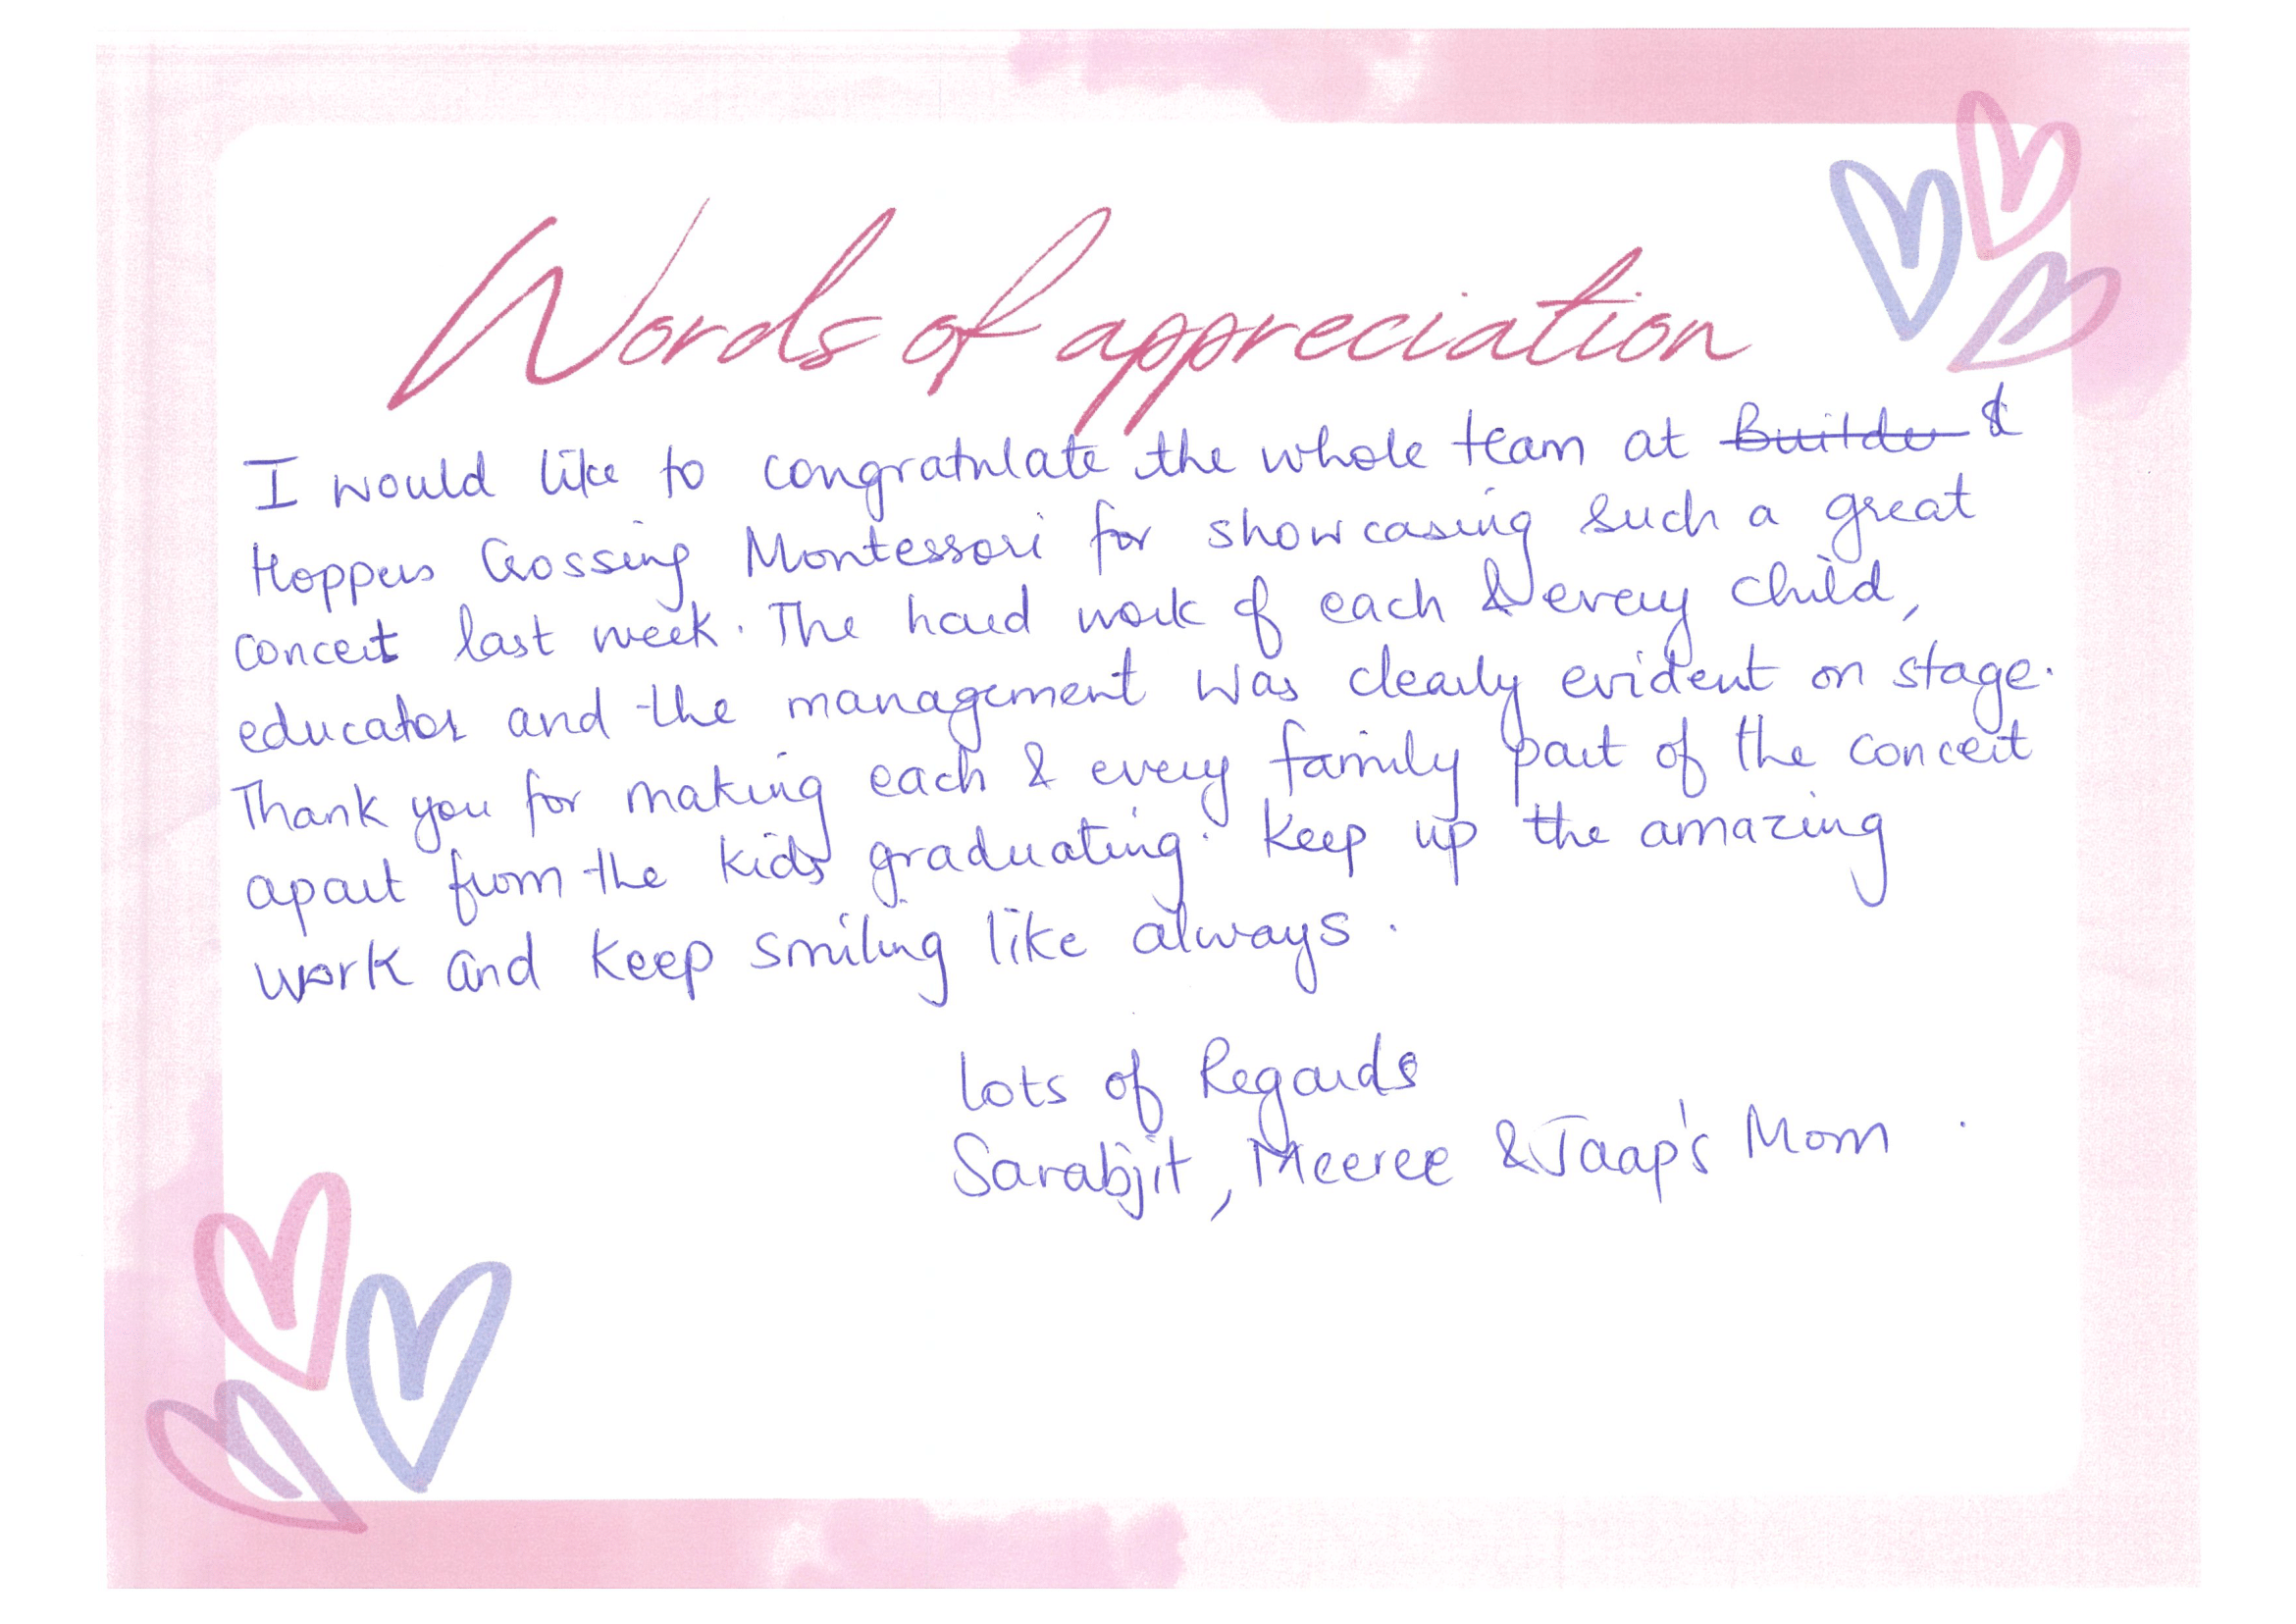 Words of appreciation
I would like to congratulate the whole team at
Hoppers Crossing Montessori for showcasing such a great
concert last week. The hard work of each & every child,
educator and the management was clearly evident on stage.
Thank you for making each & every family part of the concert
apart from the kids graduating. Keep up the amazing
work and keep smiling like always.
Lots of Regards
Sarabjit, Meeree & Jaap's Mom.